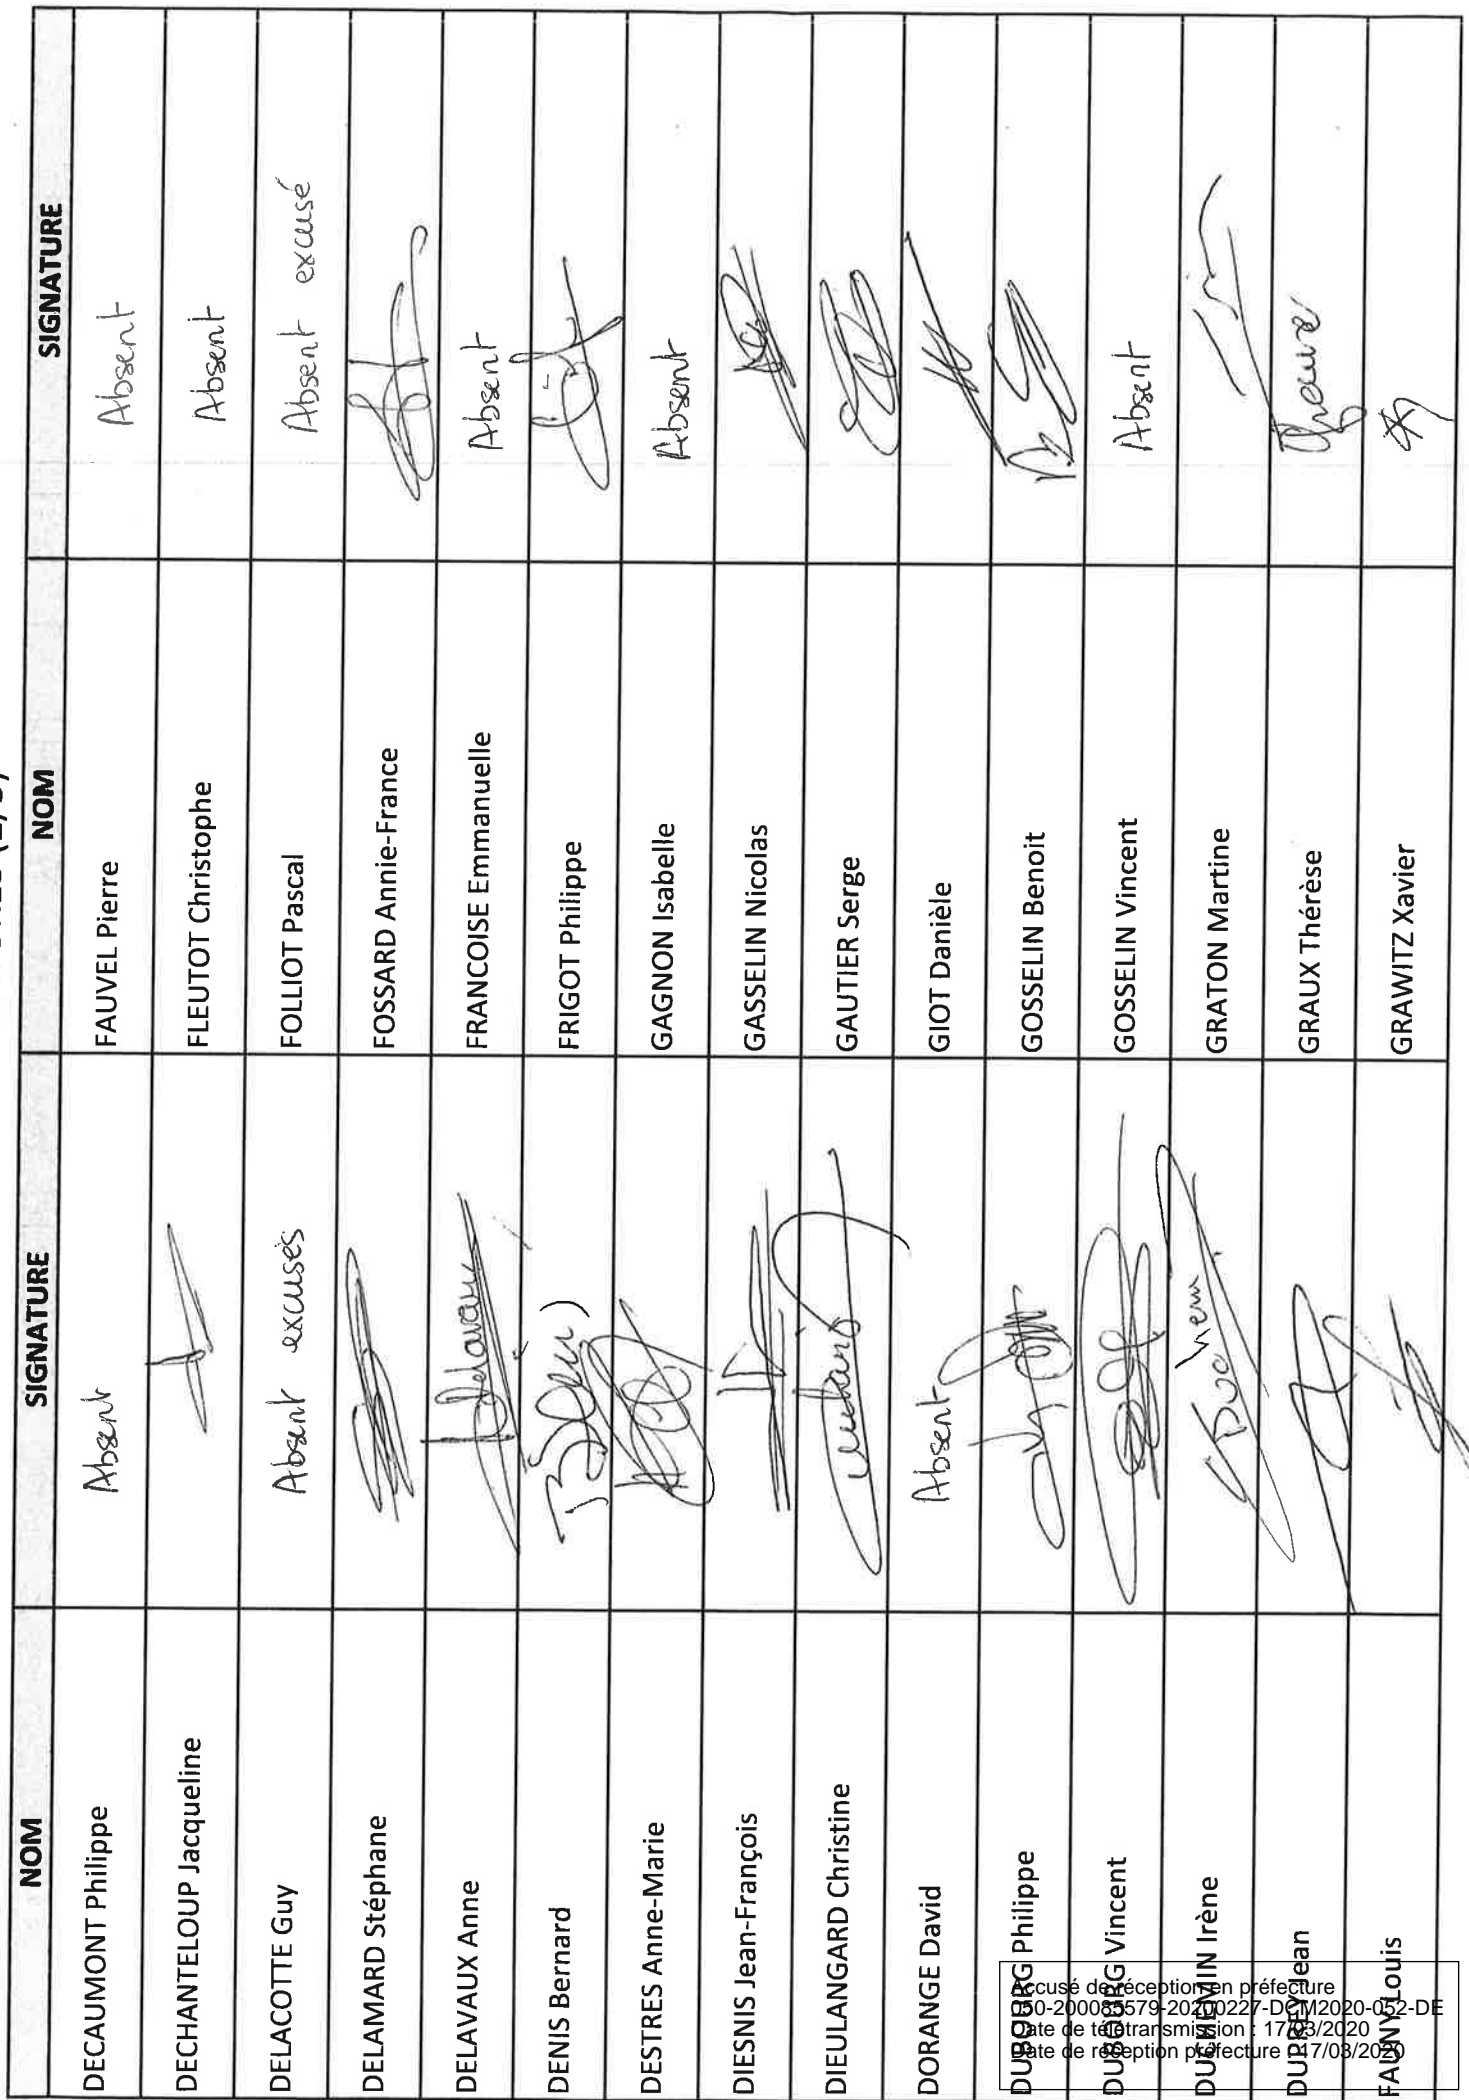 NOM SIGNATURE NOM SIGNATURE
DECAUMONT Philippe Absent FAUVEL Pierre Absent
DECHANTELOUP Jacqueline FLEUTOT Christophe Absent
DELACOTTE Guy Absent excusés FOLLIOT Pascal Absent excusé
DELAMARD Stéphane FOSSARD Annie-France
DELAVAUX Anne Delavaux FRANCOISE Emmanuelle Absent
DENIS Bernard FRIGOT Philippe
DESTRES Anne-Marie GAGNON Isabelle Absent
DIESNIS Jean-François GASSELIN Nicolas
DIEULANGARD Christine GAUTIER Serge
DORANGE David Absent GIOT Danièle
DUBOURG Philippe GOSSELIN Benoit
DUBOURG Vincent GOSSELIN Vincent Absent
DUCHEMIN Irène GRATON Martine
DUPREY Jean GRAUX Thérèse
FAUNY Louis GRAWITZ Xavier
Accusé de réception en préfecture
050-200085579-20200227-DCM2020-052-DE
Date de télétransmission : 17/03/2020
Date de réception préfecture : 17/03/2020